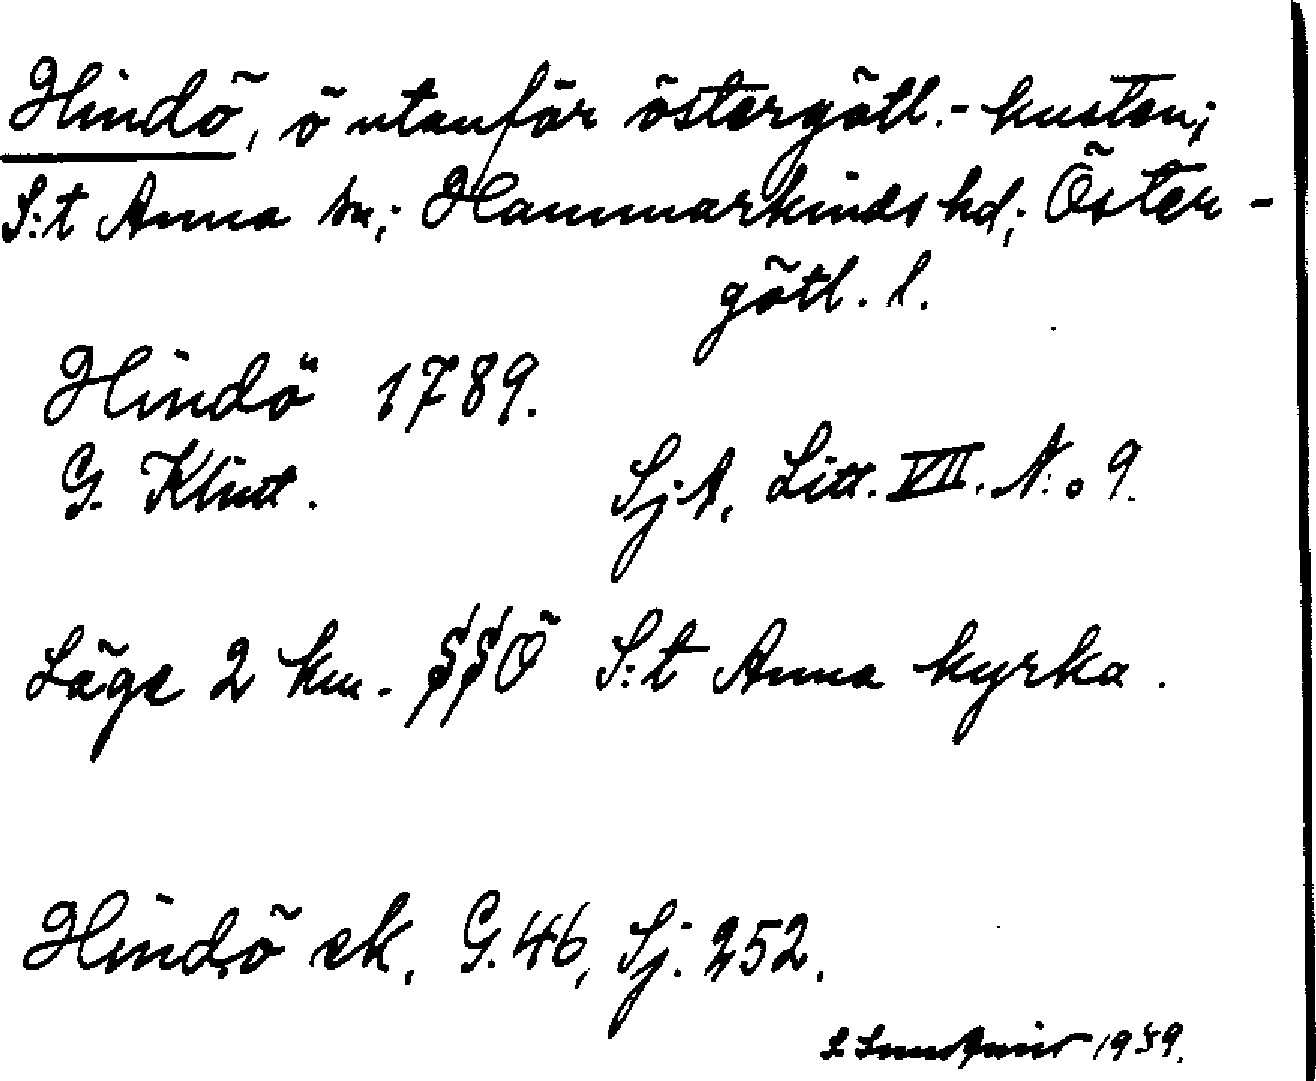 Hindö, ö utanför östergötl.-kusten;
S:t Anna sn; Hammarkinds hd; Öster-
götl. l.
Hindö 1789.
G. Klint. SjA, Litt. VII. N:o 9.
Läge 2 km. SSÖ S:t Anna kyrka.
Hindö ek. G. 46, Sj. 252.
1939.